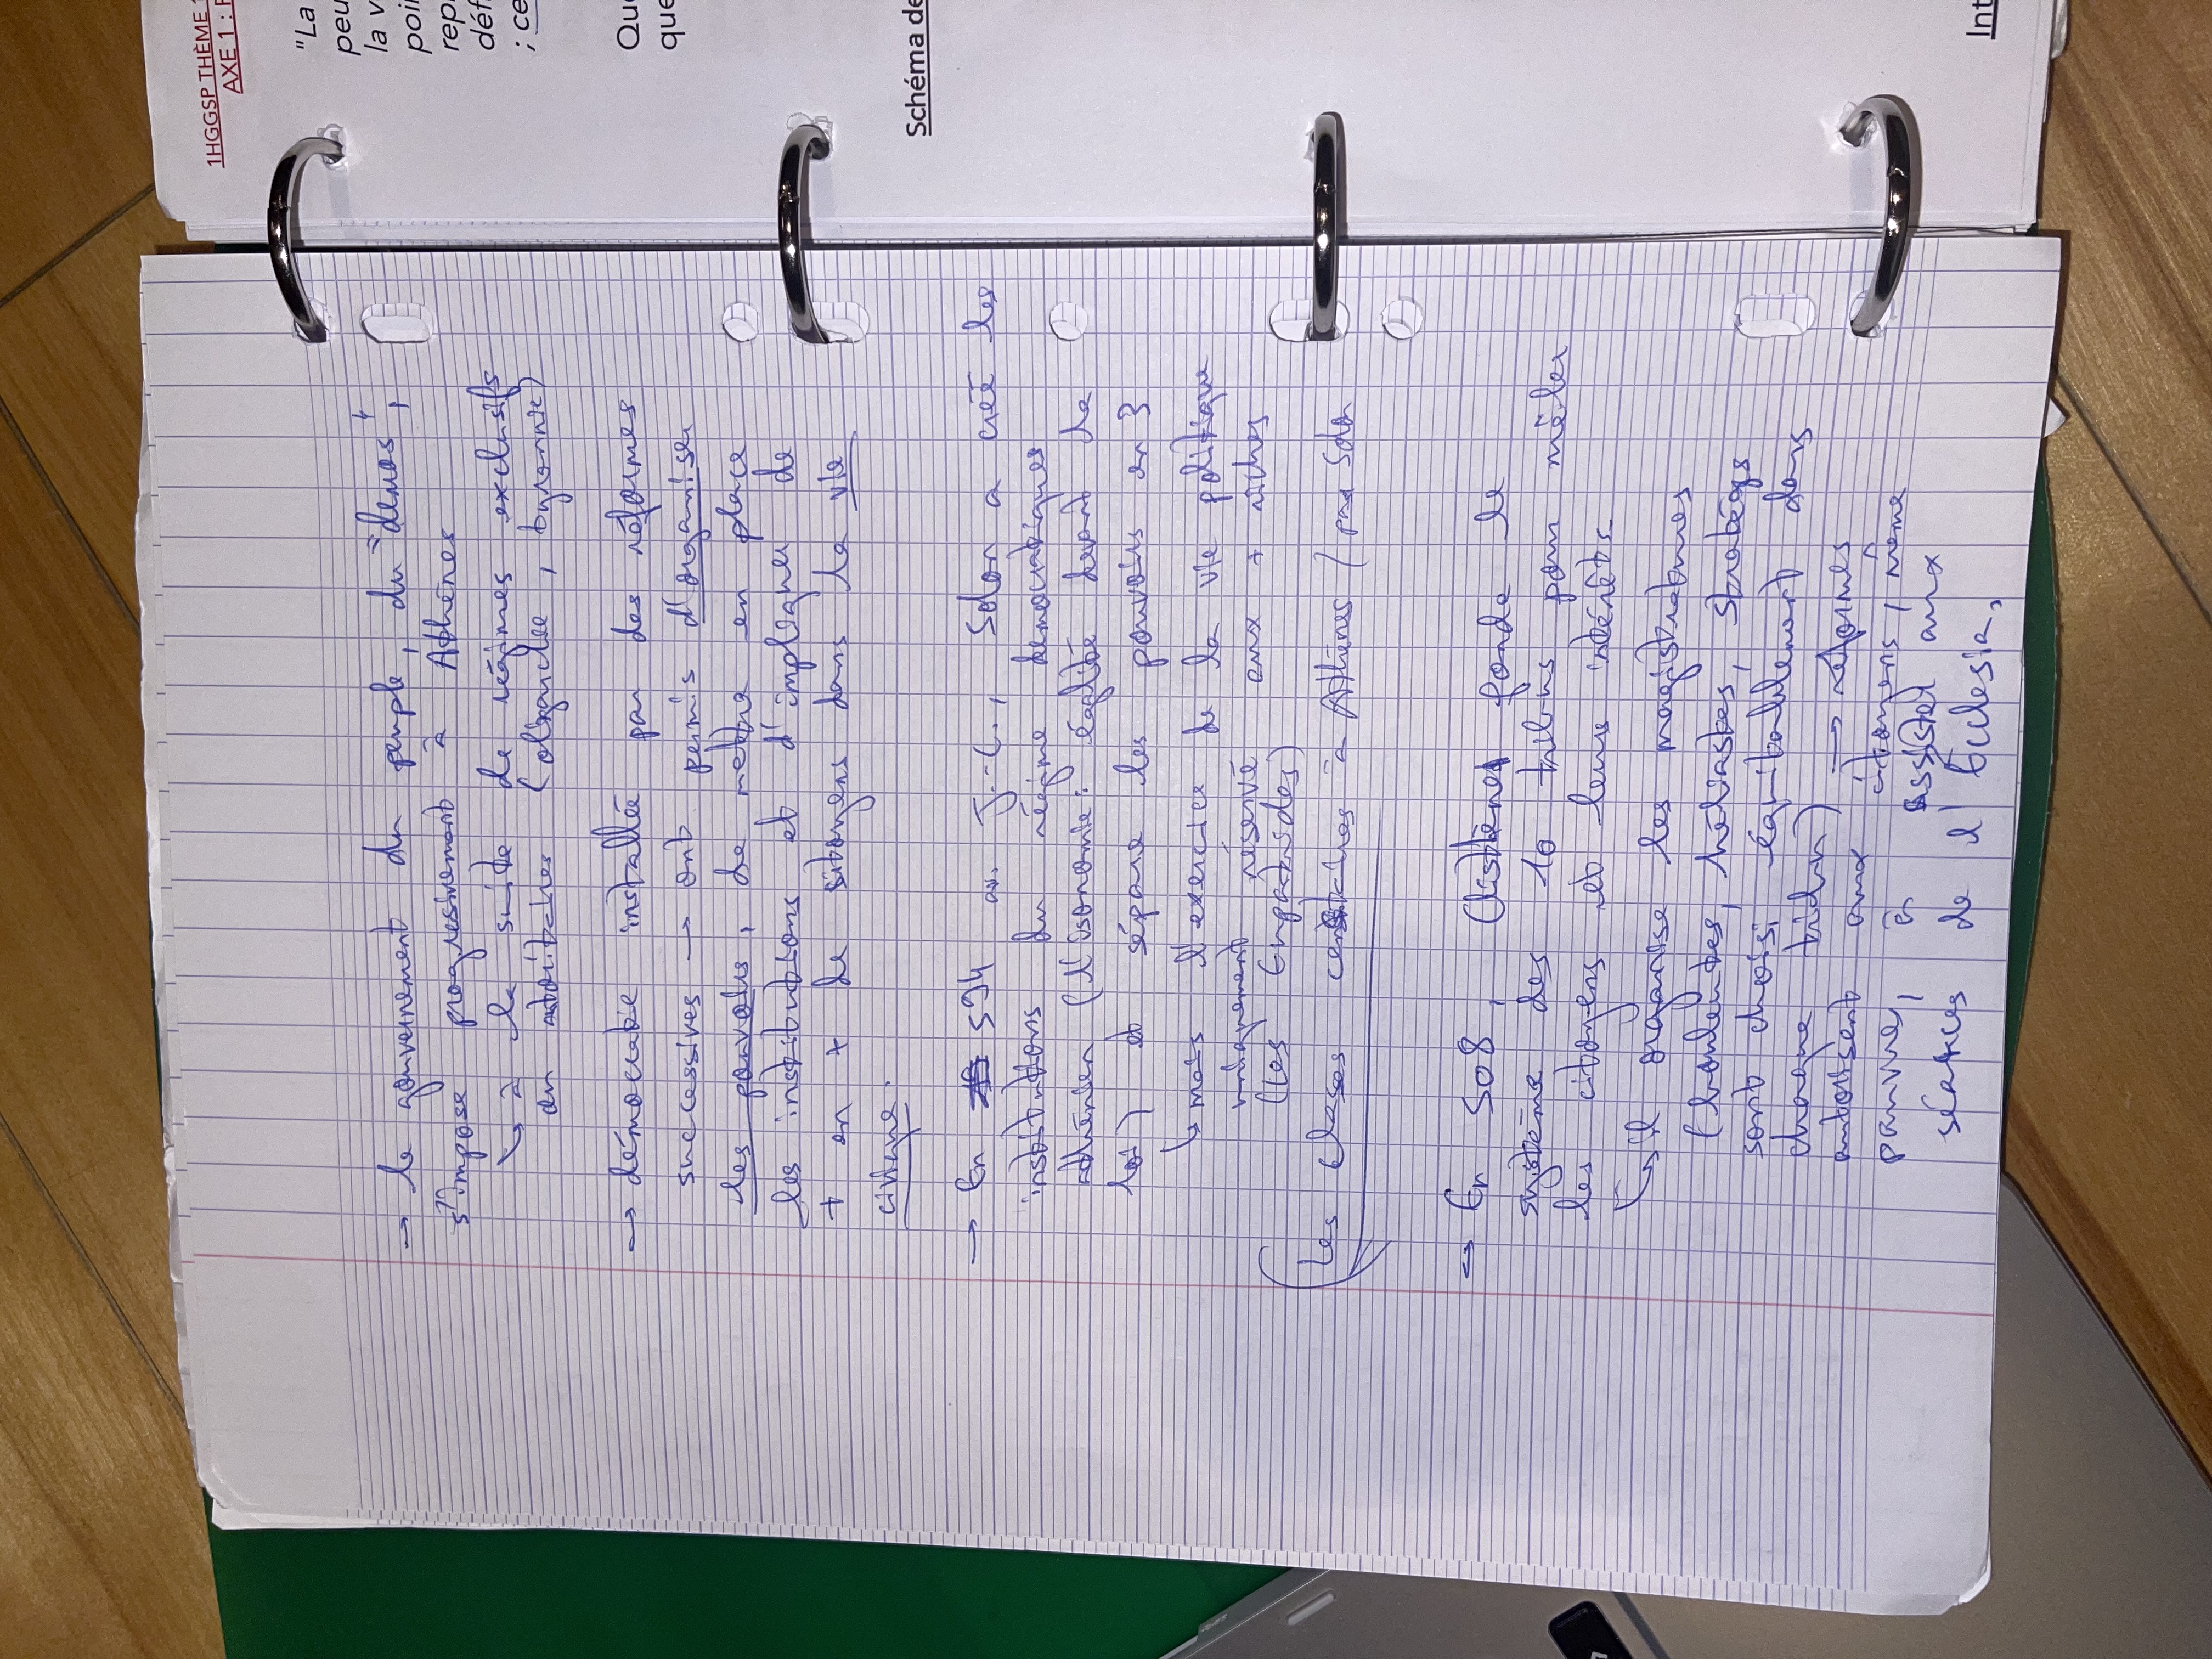 1HGGSP THÈME 1
AXE 1 :
"La
peu
la v
poin
rep
déf
; ce
Que
que
Schéma de
Int
→ le gouvernement du peuple, du "demos",
s'impose progressivement à Athènes
↳ à la suite de régimes exclusifs
ou autoritaires (oligarchie, tyrannie)
→ démocratie installée par des réformes
successives → ont permis d'organiser
les pouvoirs, de mettre en place
les institutions et d'impliquer de
+ en + de citoyens dans la vie
civique.
→ En 594 av. J.-C., Solon a créé les
institutions du régime démocratiques
athénien (l'isonomie : égalité devant la
loi) et sépare les pouvoirs en 3
↳ mais l'exercice de la vie politique
uniquement réservé aux + riches
(les Eupatrides)
Les classes censitaires à Athènes / par Solon
→ En 508, Clisthènes fonde le
système des 10 tribus pour mêler
les citoyens et leurs intérêts.
↳ il organise les magistratures
(bouleutes, héliastes, stratèges
sont choisi équitablement dans
chaque tribu) → réformes
autorisent aux citoyens, même
pauvres, à assister aux
séances de l'Ecclesia,